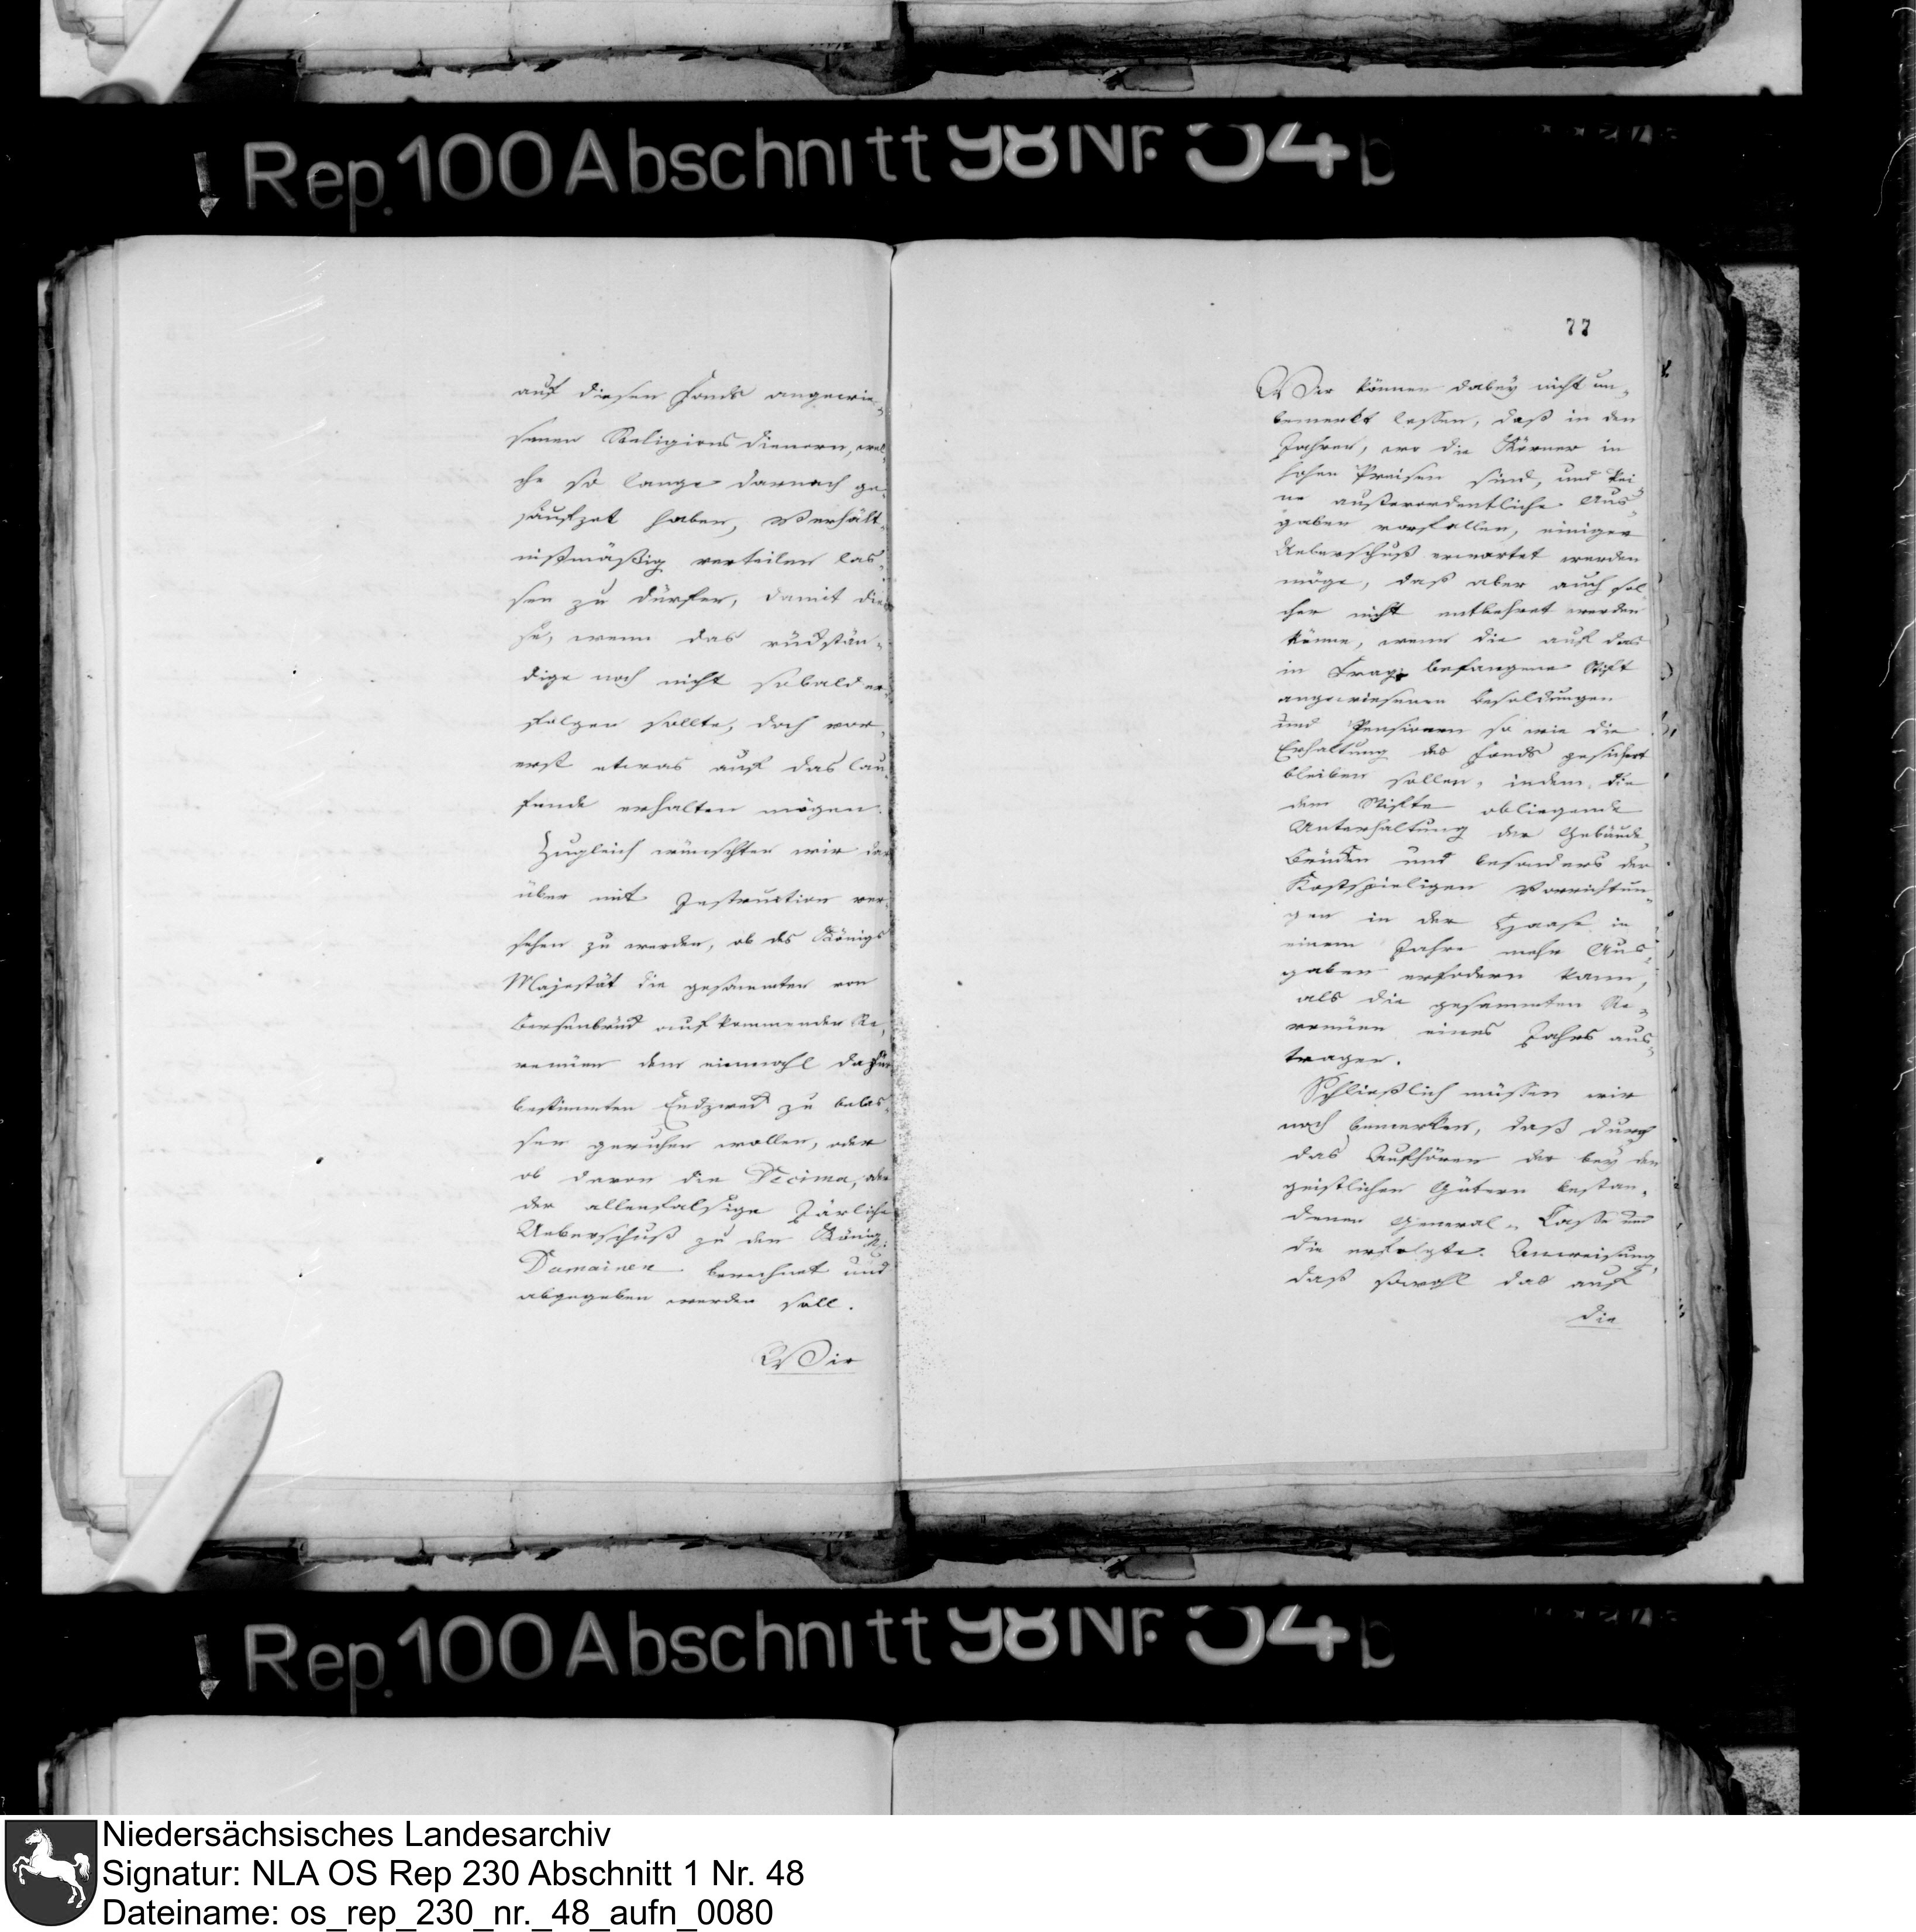 Rep. 100 Abschnitt 98 Nr. 54 b
auf diesen Fonds angewie-
senen Religions dienern, wel-
che so lange darnach ge-
seufzet haben, Verhält-
nißmäßig verteilen las-
sen zu dürfen, damit die
se, wenn das rückstän-
dige noch nicht sobald er-
folgen sollte, doch vor-
erst etwas auf das lau-
fende erhalten mögen.
Zugleich wünschten wir dar
über mit Instruction ver-
sehen zu werden, ob des Königs
Majestät die gesammten von
Bersenbrück aufkommenden Re-
venüen dem einmahl dafür
bestimmten Endzweck zu belas-
sen geruhen wollen, oder
ob davon die Decima, oder
der allenfalsige Järliche
Ueberschuß zu den Königl.
Domainen berechnet und
abgegeben werden soll.
Wir
77
Wir können dabey nicht un-
bemerkt lassen, daß in den
Jahren, wo die Körner in
hohen Preisen sind, und kei-
ne außerordentliche Aus-
gaben vorfallen, einiger
Ueberschuß erwartet werden
möge, daß aber auch sol
cher nicht entbehret werden
könne, wenn die auf das
in Frage befangene Stift
angewiesenen Besoldungen
und Pensionen so wie die
Erhaltung des Fonds gesichert
bleiben sollen, indem die
dem Stifte obliegende
Unterhaltung der Gebäude,
Brücken und besonders der
Kostspieligen Vorrichtun-
gen in der Haase in
einem Jahre mehr Aus-
gaben erfodern kann,
als die gesammten Re-
venüen eines Jahrs aus-
tragen.
Schließlich müssen wir
noch bemerken, daß durch
das Aufhören der bey den
geistlichen Gütern bestan-
denen General-Casse und
die erfolgte Anweisung,
daß sowohl das auf
die
Rep. 100 Abschnitt 98 Nr. 54 b
Niedersächsisches Landesarchiv
Signatur: NLA OS Rep 230 Abschnitt 1 Nr. 48
Dateiname: os_rep_230_nr._48_aufn_0080